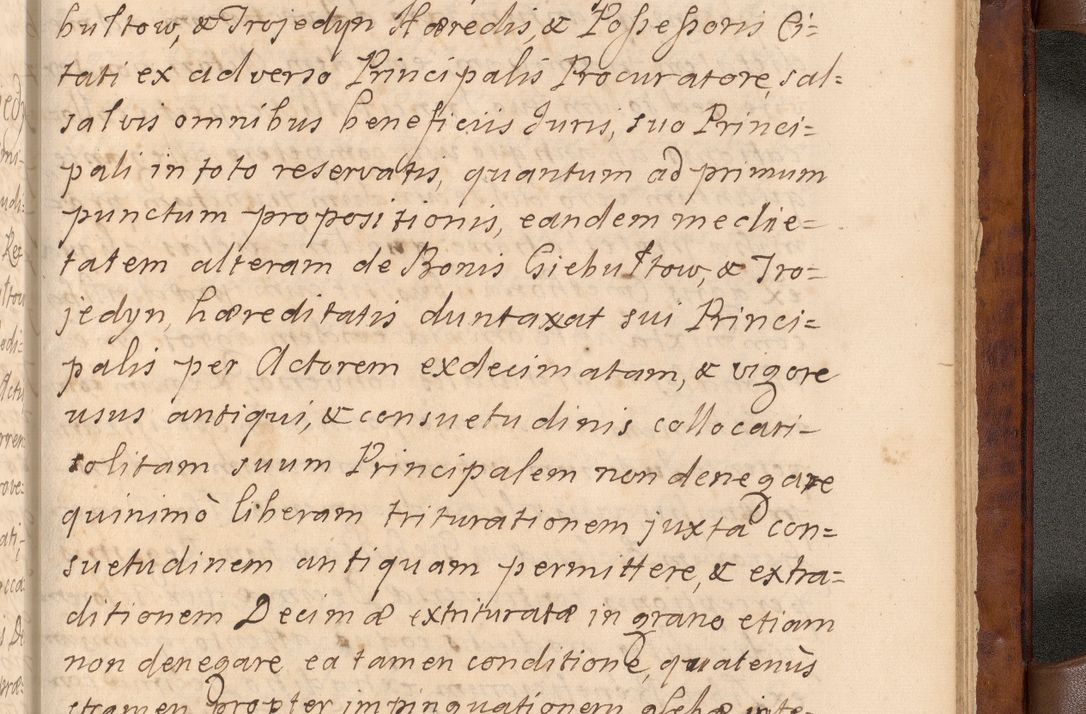 bułtow, & Trojedyn Hæredis, & Possessoris Ci=
tati ex adverso Principalis Procuratore, sal=
salvis omnibus beneficiis Juris, suo Princi=
pali in toto reservatis, quantum ad primum
punctum propositionis, eandem medie=
tatem alteram de Bonis Giebułtow, & Tro=
jedyn, hæreditatis duntaxat sui Princi=
palis per Actorem exdecimatam, & vigore
usus antiqui, & consuetudinis collocari
solitam suum Principalem non denegare
quinimò liberam triturationem juxta con=
suetudinem antiquam permittere, & extra=
ditionem Decimæ extrituratæ in grano etiam
non denegare ea tamen conditione, quatenùs
stramen propter impinguationem glebæ inte=